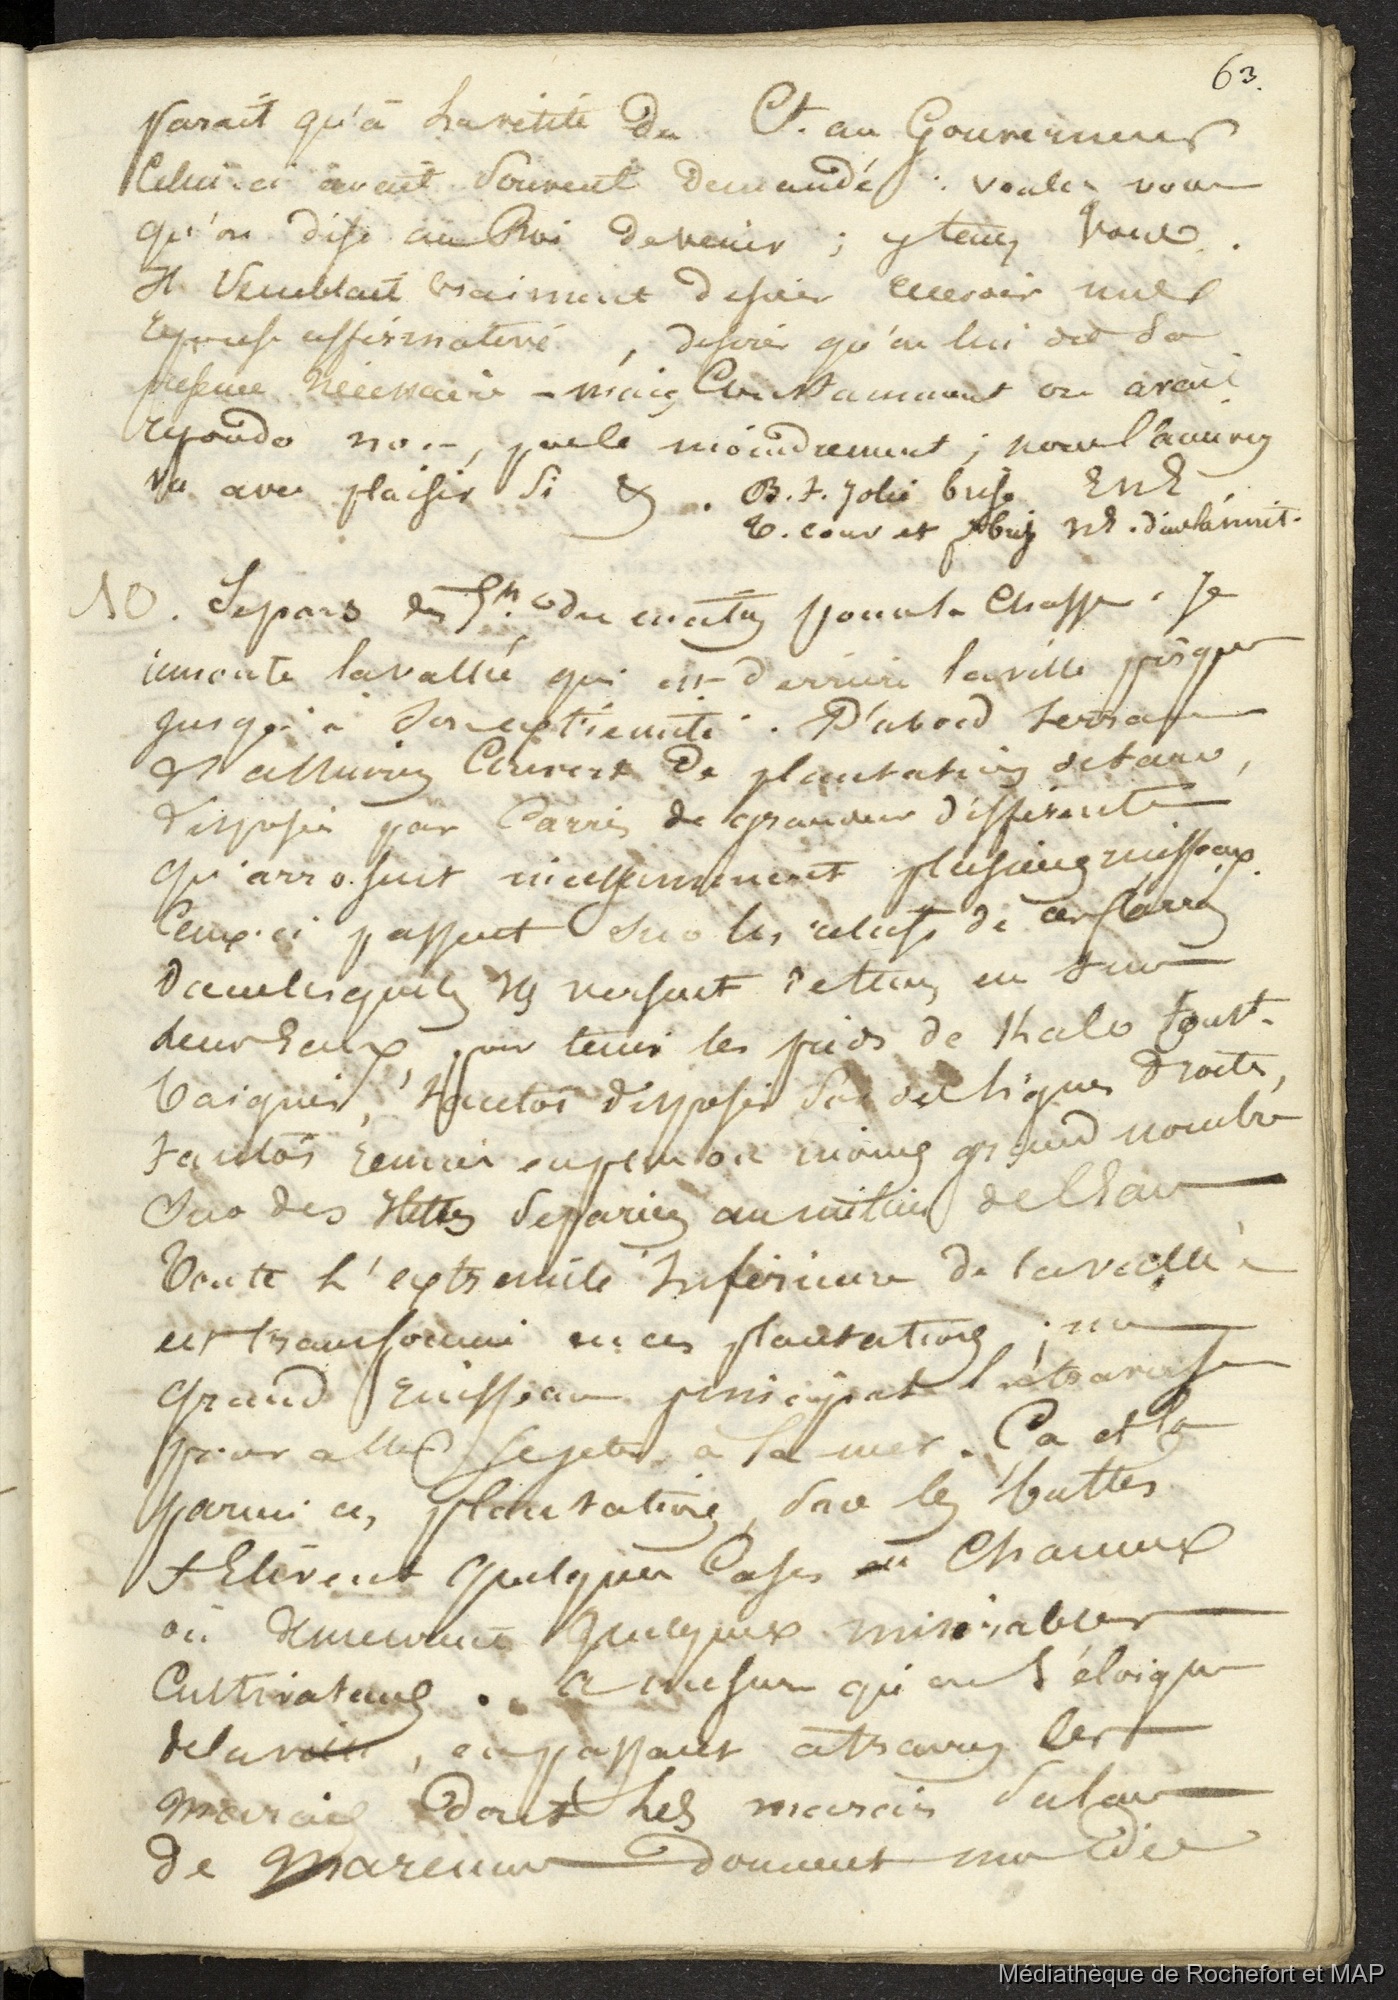 63.
parait qu'à la visite du Ct. au Gouverneur
Celui-ci avait souvent demandé : voulez vous
qu'on dise au Roi de venir ; y tenez vous.
Il semblait vraiment desirer recevoir une
reponse affirmative, desirer qu'on lui dit sa
presence necessaire - mais constamment on avait
repondu non -, pas le moindrement ; nous l'aurions
vu avec plaisir si &. B. F. jolie brise ENE
T. cour et NE. dans la nuit.
10. Je pars du matin pour la chasse. Je
remonte la vallée qui est derriere la ville
jusqu'à son extremité. D'abord terrain
d'alluvion couvert de plantations de taro,
disposées par carrés de grandeur differente
qu'arrosent incessamment plusieurs ruisseaux.
Ceux-ci passent sur les talus de ces carrés
dans lesquels ils versent de tems en tems
leurs eaux, pour tenir les pieds de Kalo tout.
baignés, tantot disposés sur des lignes droites,
tantot reunis en plus ou moins grand nombre
sur des ilettes separées au milieu de l'eau
Toute l'extremité inferieure de la vallée
est transformée en ces plantations ; un
grand ruisseau principal la traverse
pour aller se jeter à la mer. Ca et la
parmi ces plantations, sur les buttes
s'elèvent quelques cases en chaume
où demeurent quelques miserables
cultivateurs. A mesure qu'on s'éloigne
de la ville, en passant à travers les
marais dont les marais salans
de Marennes donnent une idée
Médiathèque de Rochefort et MAP